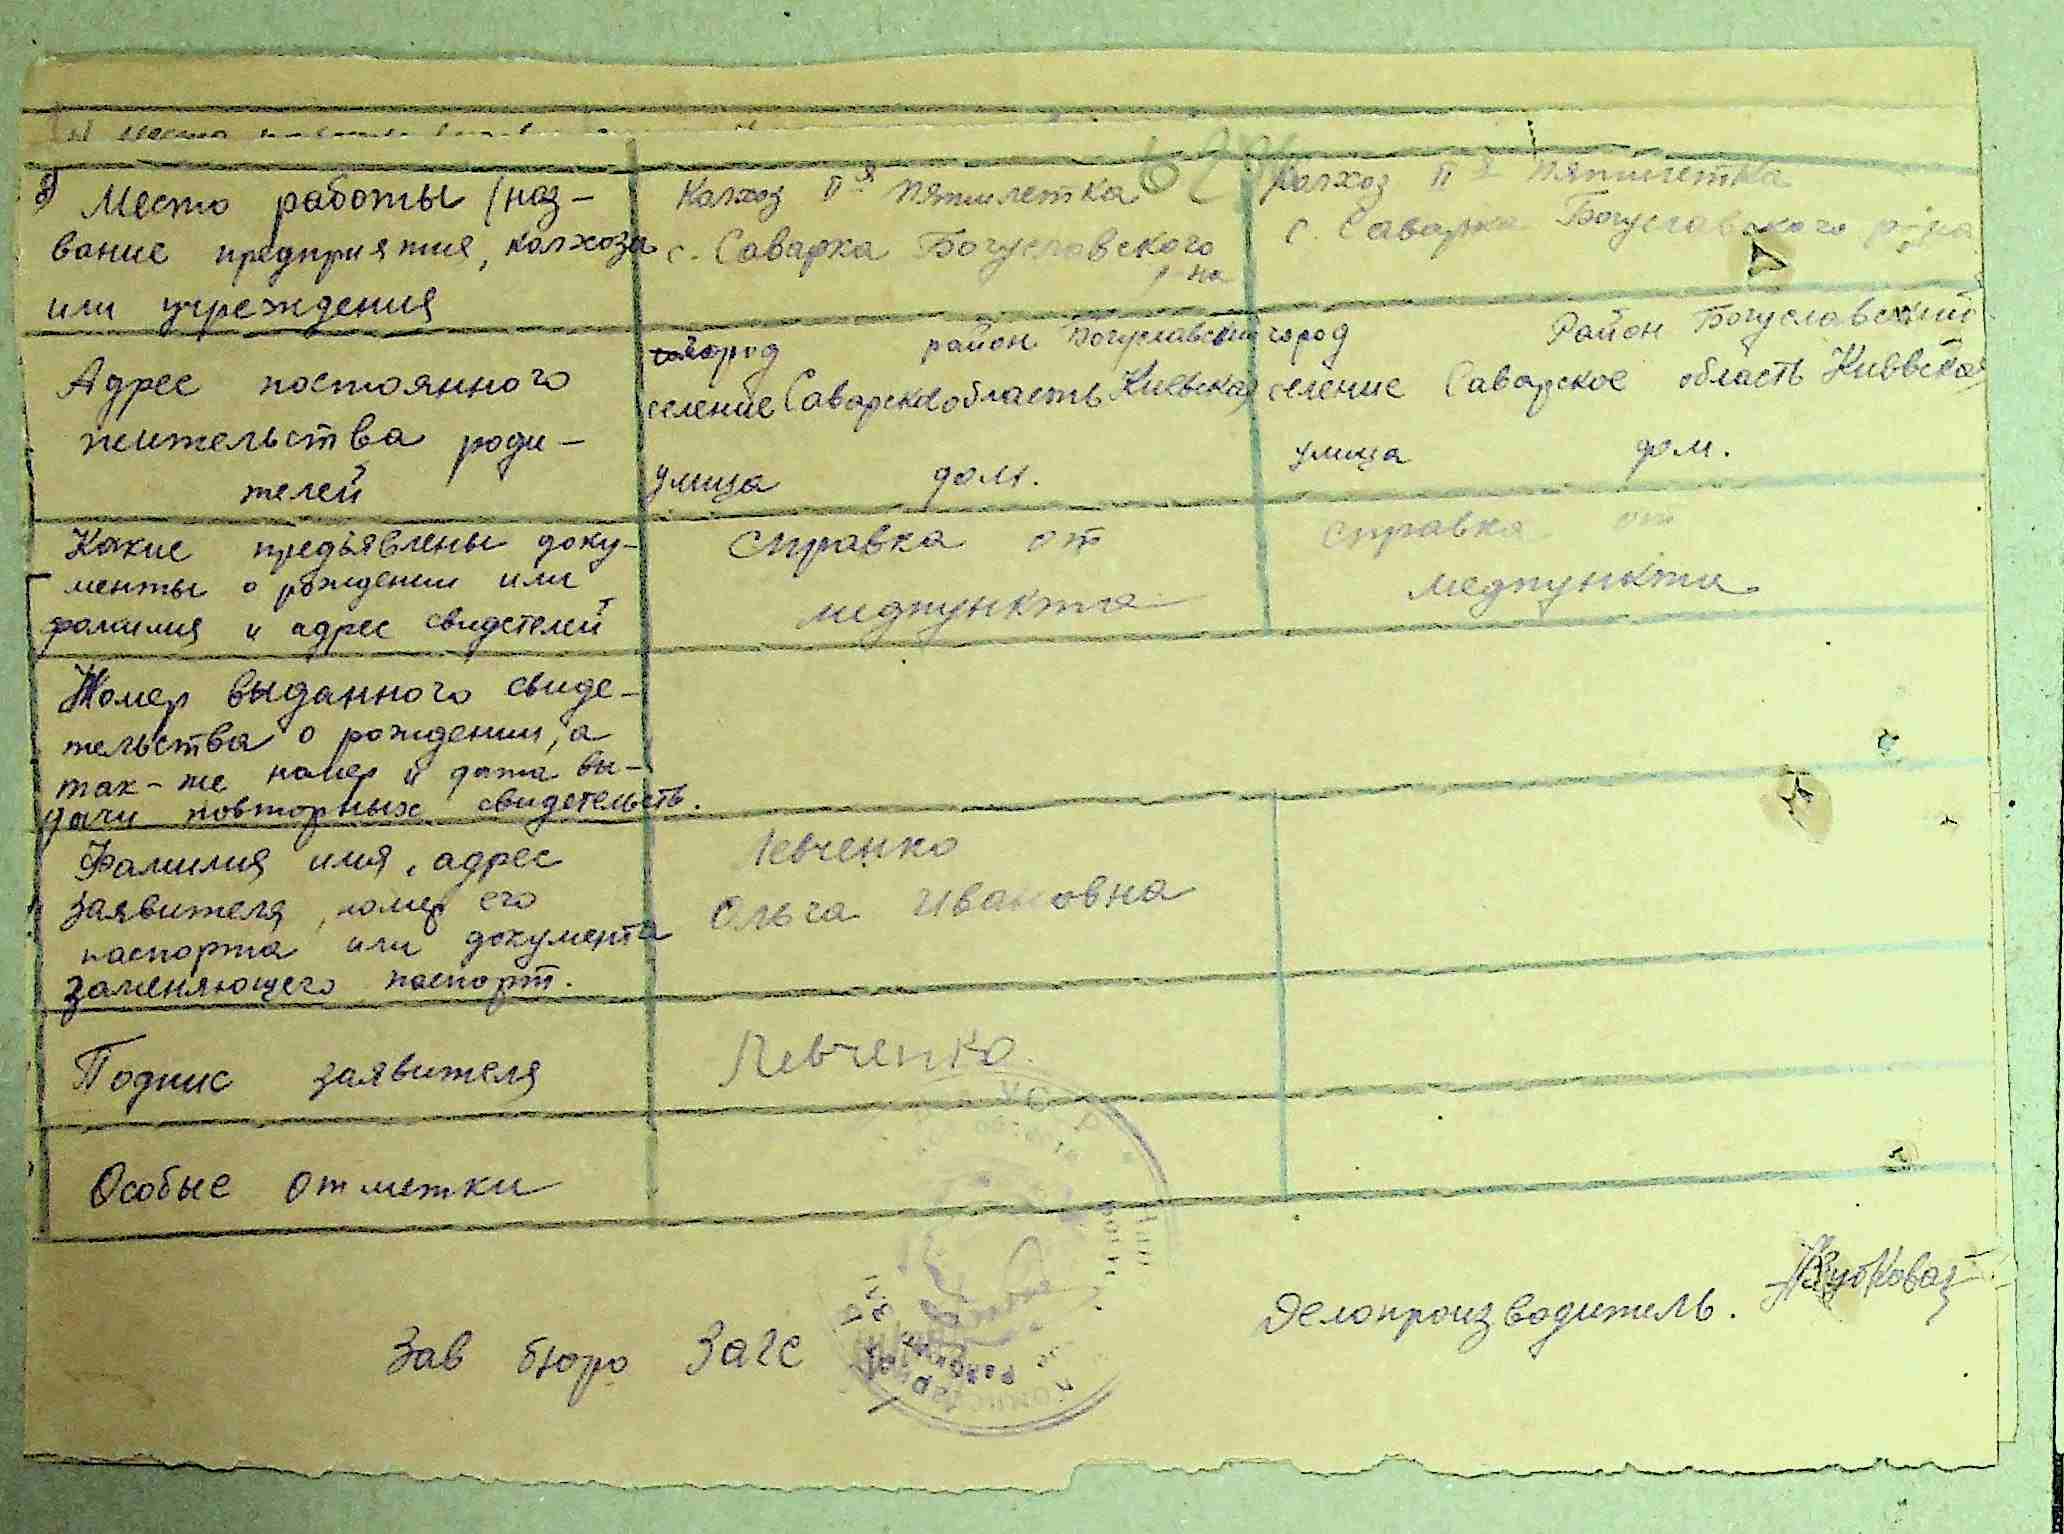 з) Место работы (наз-
вание предприятия, колхоза
или учреждения
Колхоз II я пятилетка
с. Саварка Богуславского
р-на
Колхоз II я пятилетка
с. Саварка Богуславского р-на
Адрес постоянного
жительства роди-
телей
город район Богуславский
селение Саварское область Киевская
улица дом.
город Район Богуславский
селение Саварское область Киевская
улица дом.
Какие предъявлены доку-
менты о рождении или
фамилия и адрес свидетелей
Справка от
медпункта
Справка от
медпункта
Номер выданного свиде-
тельства о рождении, а
так-же номер и дата вы-
дачи повторных свидетельств.
Фамилия имя, адрес
заявителя, номер его
паспорта или документа
заменяющего паспорт.
Левченко
Ольга Ивановна
Подпис заявителя
Левченко.
Особые отметки
Зав бюро Загс
Делопроизводитель.